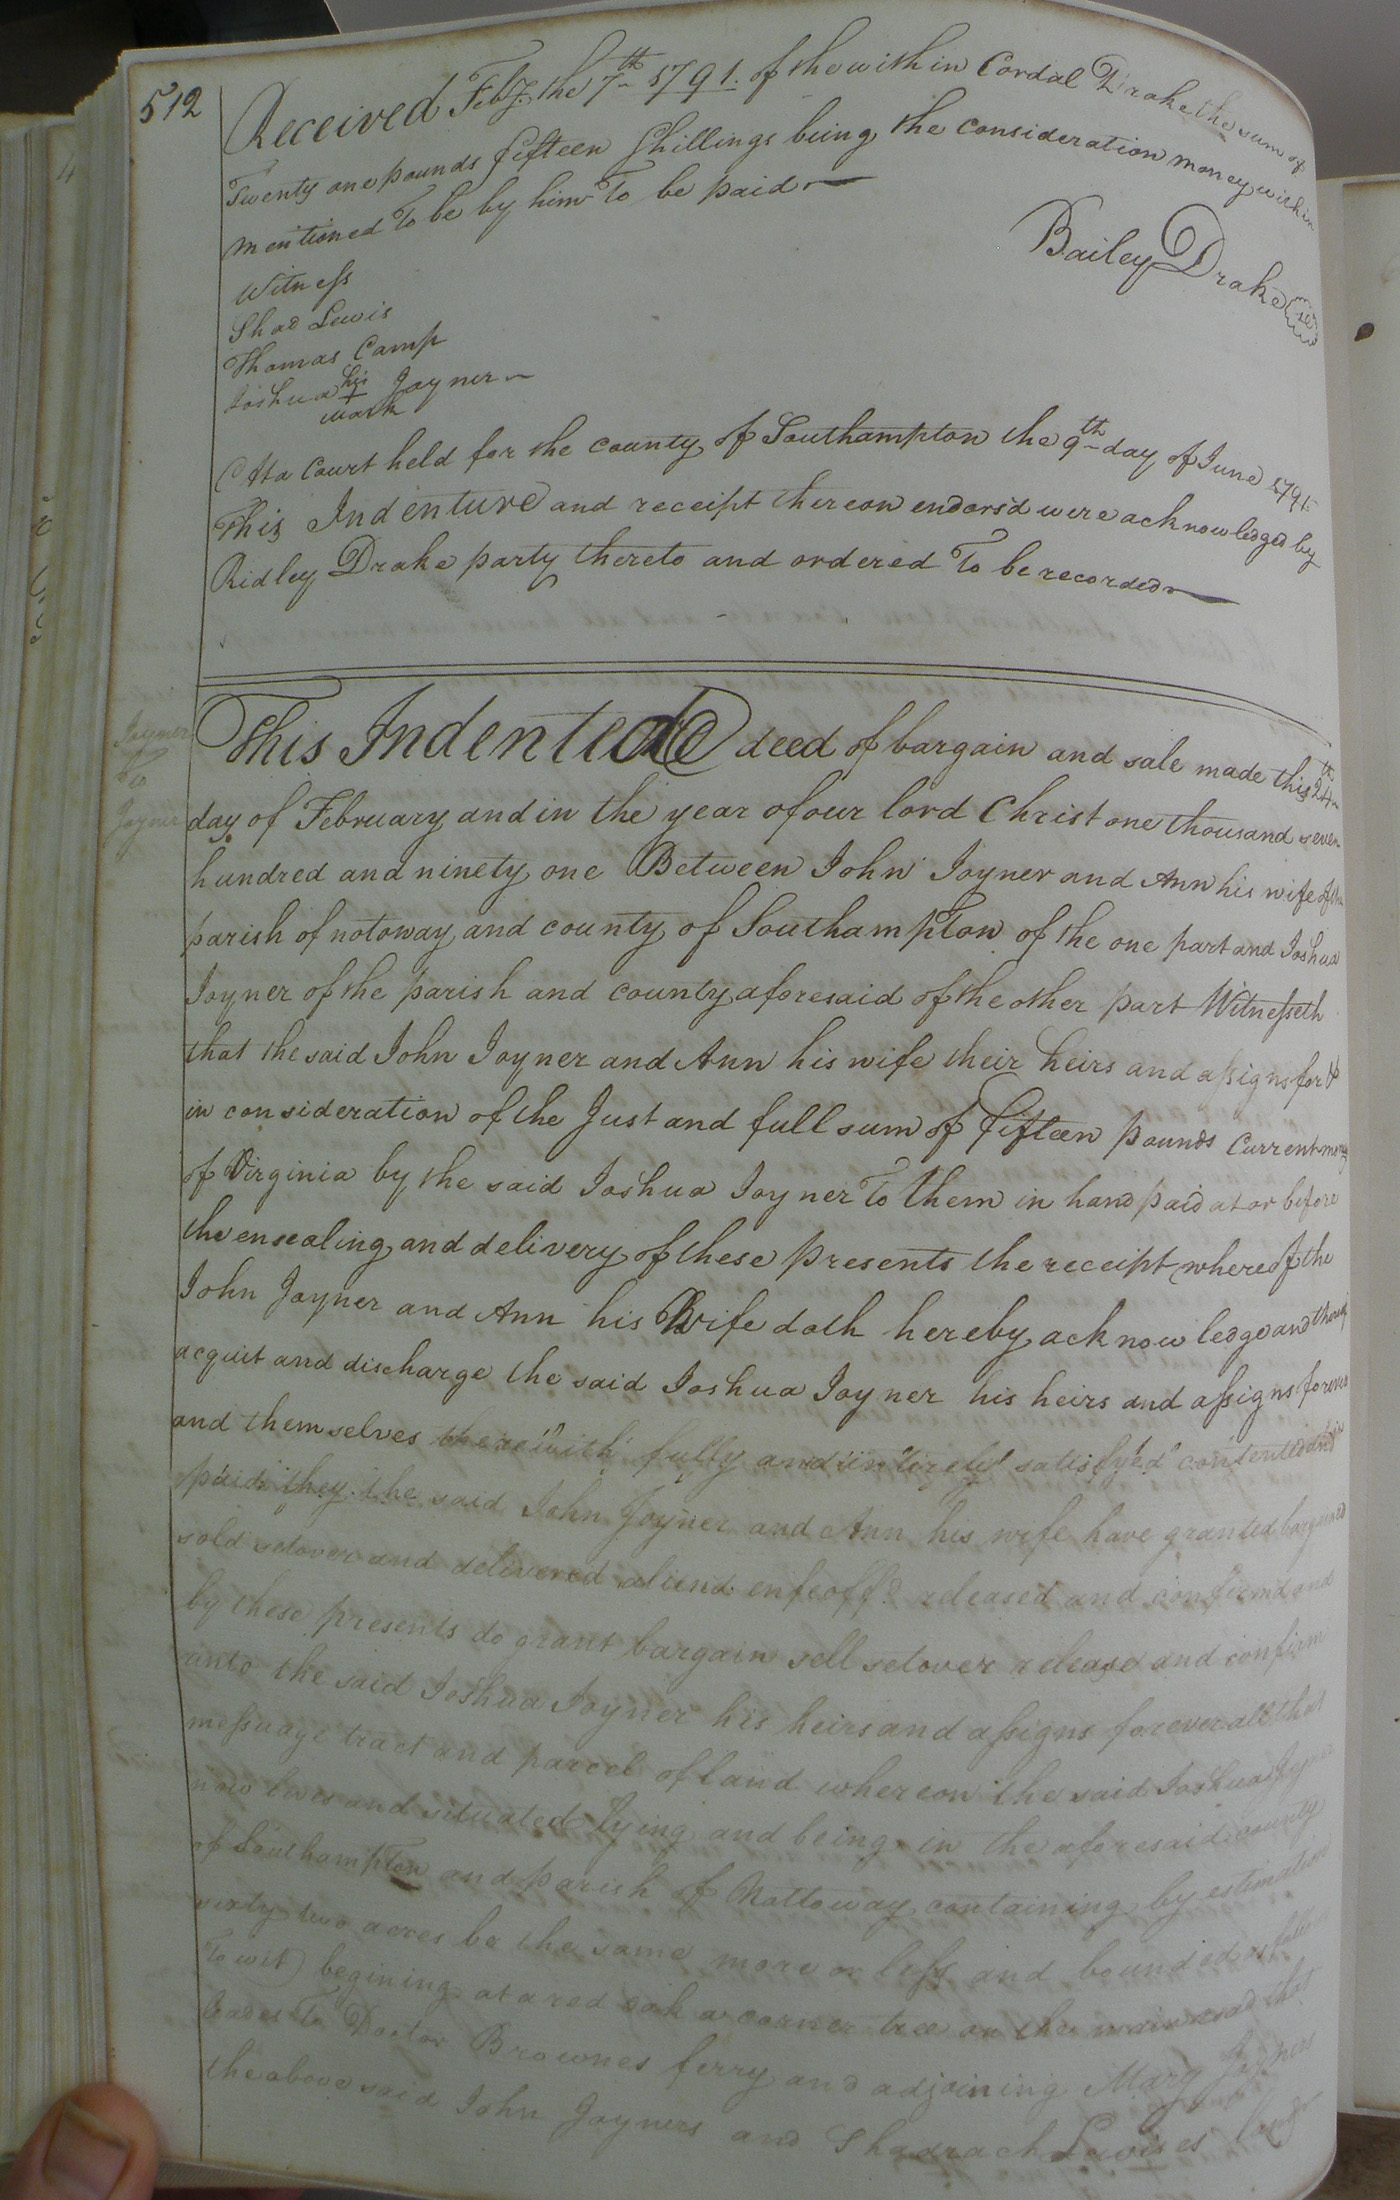 512
Received Feby. the 7th 1791. of the within Cordal Drake the sum of
Twenty one pounds fifteen Shillings being the consideration money within
mentioned To be by him To be paid
Bailey Drake
Witness
Shad Lewis
Thomas Camp
Joshua his Joyner
mark
At a Court held for the county of Southampton the 9th day of June 1791
This Indenture and receipt thereon endors'd were acknowledged by
Ridley Drake party thereto and ordered To be recorded
Joyner
To
Joyner
This Indented deed of bargain and sale made this 24th
day of February and in the year of our lord Christ one thousand seven
hundred and ninety one Between John Joyner and Ann his wife of the
parish of notoway and county of Southampton of the one part and Joshua
Joyner of the parish and county aforesaid of the other part Witnesseth
that the said John Joyner and Ann his wife their heirs and assigns for &
in consideration of the Just and full sum of fifteen pounds Current money
of Virginia by the said Joshua Joyner To them in hand paid at or before
the ensealing and delivery of these presents the receipt whereof the
John Joyner and Ann his Wife doth hereby acknowledge and thereof
acquit and discharge the said Joshua Joyner his heirs and assigns forever
and themselves therewith fully and intirely satisfyed contented and
paid they the said John Joyner and Ann his wife have granted bargained
sold setover and delivered aliend enfeoffd released and confirmd and
by these presents do grant bargain sell setover release and confirm
unto the said Joshua Joyner his heirs and assigns forever all that
messuage tract and parcel of land whereon the said Joshua Joyner
now lives and situated lying and being in the aforesaid county
of Southampton and parish of Nottoway containing by estimation
sixty two acres be the same more or less and bounded as
To wit) begining at a red oak a corner tree on the main road that
leades To Doctor Brownes ferry and adjoining Mary Joyners
the above said John Joyners and Shadrach Lewises